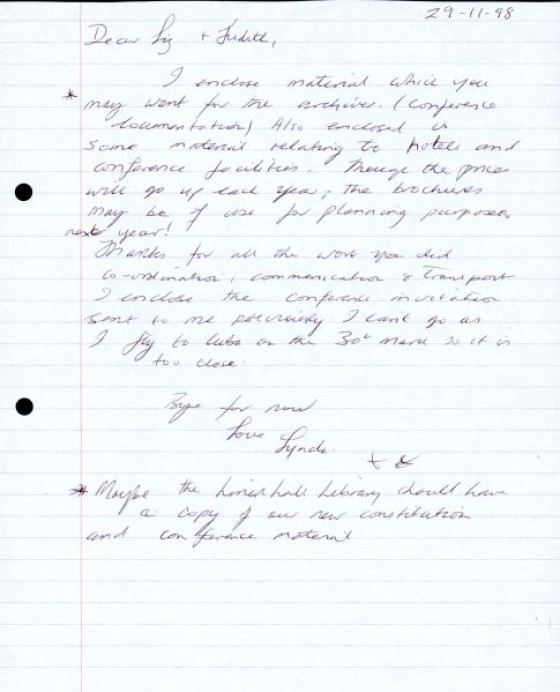 29-11-98
Dear Liz + Judith,
I enclose material which you
* may want for the archives. (Conference
documentation) Also enclosed is
some material relating to hotels and
conference facilities. Though the prices
will go up each year, the brochures
may be of use for planning purposes
next year!
Thanks for all the work you did
co-ordination, communication & transport
I enclose the conference invitation
sent to me previously I can't go as
I fly to Cuba on the 30th March so it is
too close.
Bye for now
Love Lynda.
* Maybe the Linenhall Library should have
a copy of our new constitution
and conference material